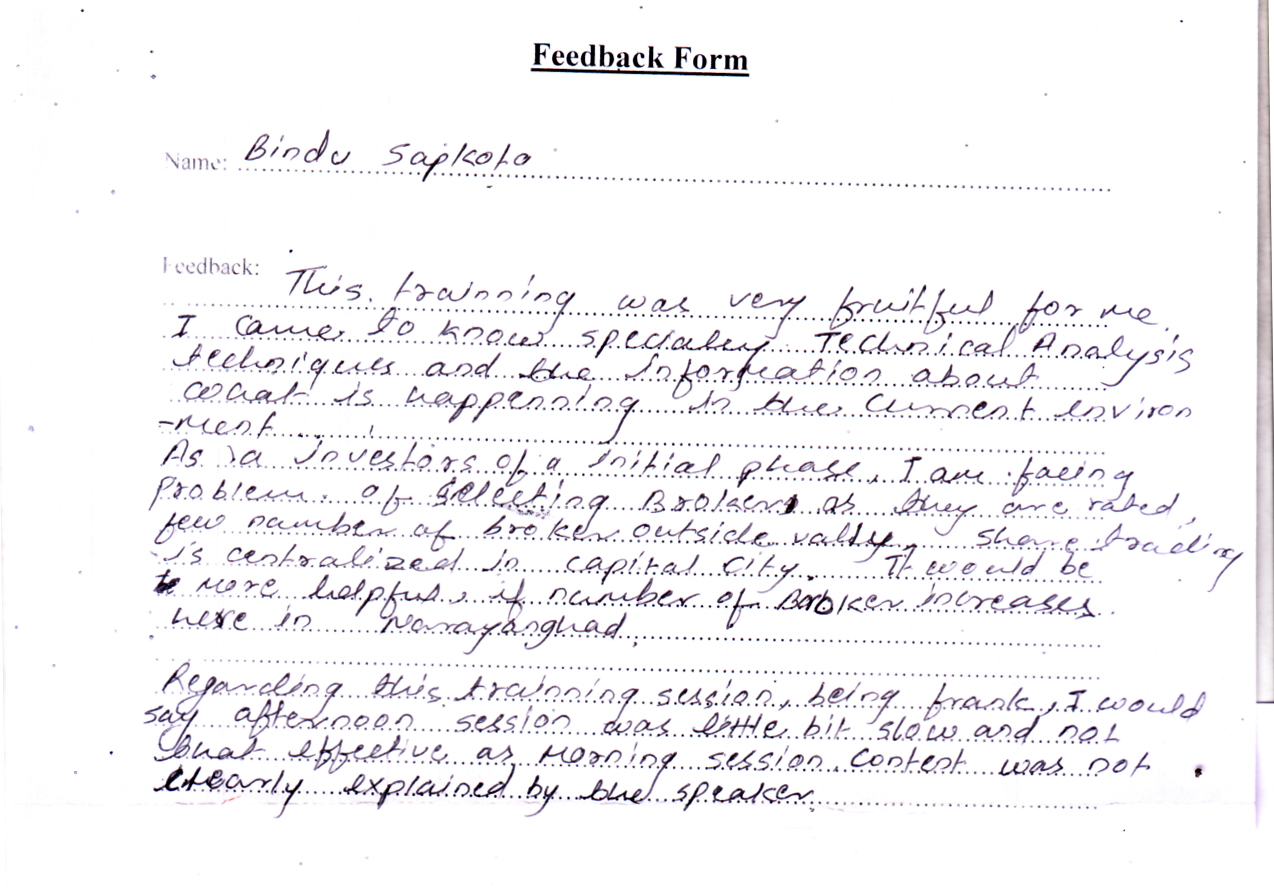 Feedback Form
Name: Bindu Sapkota
Feedback: This trainning was very fruitful for me.
I came to know specialy Technical Analysis
techniques and the information about
what is happenning in the current environ
-ment.
As a investors of a initial phase, I am facing
problem of selecting Broker as they are rated,
few number of broker outside vally, share trading
is centralized in capital city. It would be
more helpful, if number of Broker increases
here in Narayanghad.
Regarding this trainning session, being frank, I would
say afternoon session was little bit slow and not
that effective as morning session. content was not
clearly explained by the speaker.